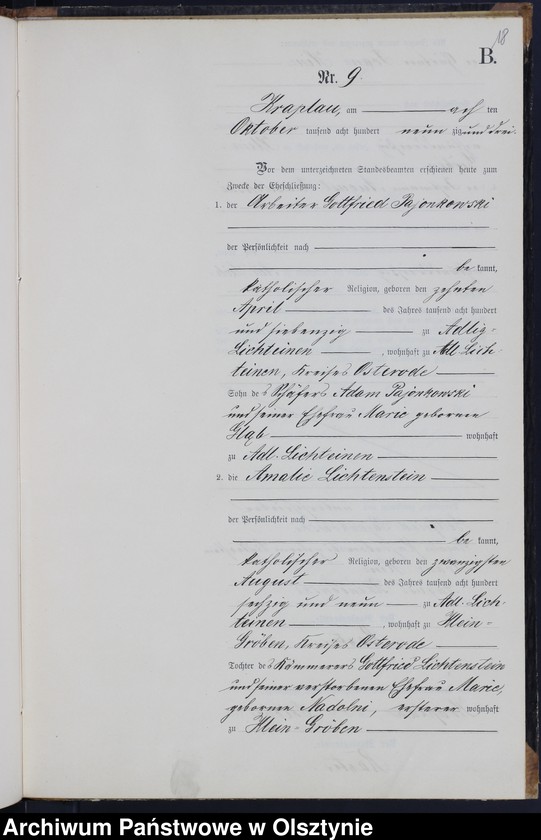 18
B.
Nr. 9
Kraplau, am acht ten
Oktober tausend acht hundert neun zig und drei.
Vor dem unterzeichneten Standesbeamten erschienen heute zum
Zwecke der Eheschließung:
1. der Arbeiter Gottfried Pajonkowski
der Persönlichkeit nach
be kannt,
katholischer Religion, geboren den zehnten
April des Jahres tausend acht hundert
und siebenzig zu Adlig-
Lichteinen, wohnhaft zu Adl. Lich-
teinen, Kreises Osterode
Sohn des Schäfers Adam Pajonkowski
und seiner Ehefrau Marie geborenen
Głąb wohnhaft
zu Adl. Lichteinen
2. die Amalie Lichtenstein
der Persönlichkeit nach
be kannt,
katholischer Religion, geboren den zwanzigsten
August des Jahres tausend acht hundert
sechzig und neun zu Adl. Lich-
teinen, wohnhaft zu Klein-
Gröben, Kreises Osterode
Tochter des Kämmerers Gottfried Lichtenstein
und seiner verstorbenen Ehefrau Marie,
geborenen Nadolni, ersterer wohnhaft
zu Klein-Gröben
Archiwum Państwowe w Olsztynie